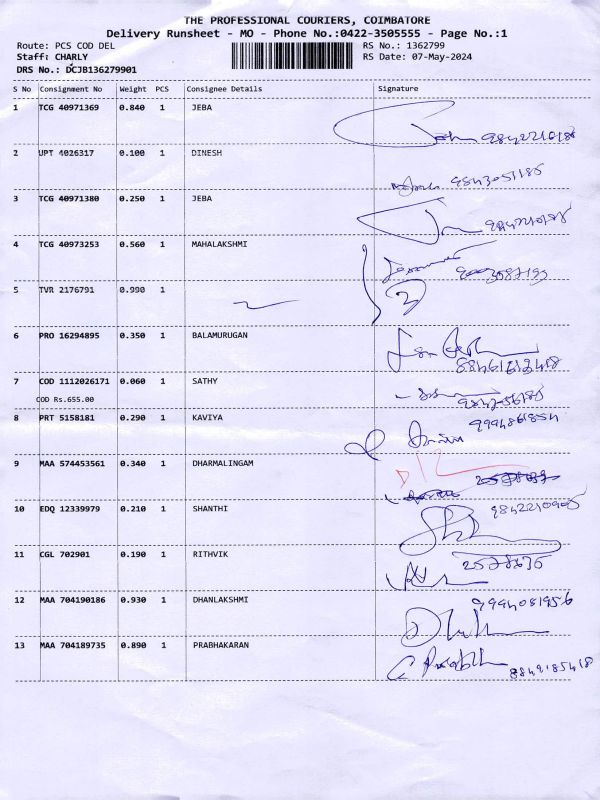 THE PROFESSIONAL COURIERS, COIMBATORE
Delivery Runsheet - MO - Phone No.:0422-3505555 - Page No.:1
Route: PCS COD DEL RS No.: 1362799
Staff: CHARLY RS Date: 07-May-2024
DRS No.: DCJB136279901
S No Consignment No Weight PCS Consignee Details Signature
1 TCG 40971369 0.840 1 JEBA
2 UPT 4026317 0.100 1 DINESH
3 TCG 40971380 0.250 1 JEBA
4 TCG 40973253 0.560 1 MAHALAKSHMI
5 TVR 2176791 0.990 1
6 PRO 16294895 0.350 1 BALAMURUGAN
7 COD 1112026171 0.060 1 SATHY
COD Rs.655.00
8 PRT 5158181 0.290 1 KAVIYA
9994861854
9 MAA 574453561 0.340 1 DHARMALINGAM
10 EDQ 12339979 0.210 1 SHANTHI
11 CGL 702901 0.190 1 RITHVIK
12 MAA 704190186 0.930 1 DHANLAKSHMI
9994081956
13 MAA 704189735 0.890 1 PRABHAKARAN
8849185418